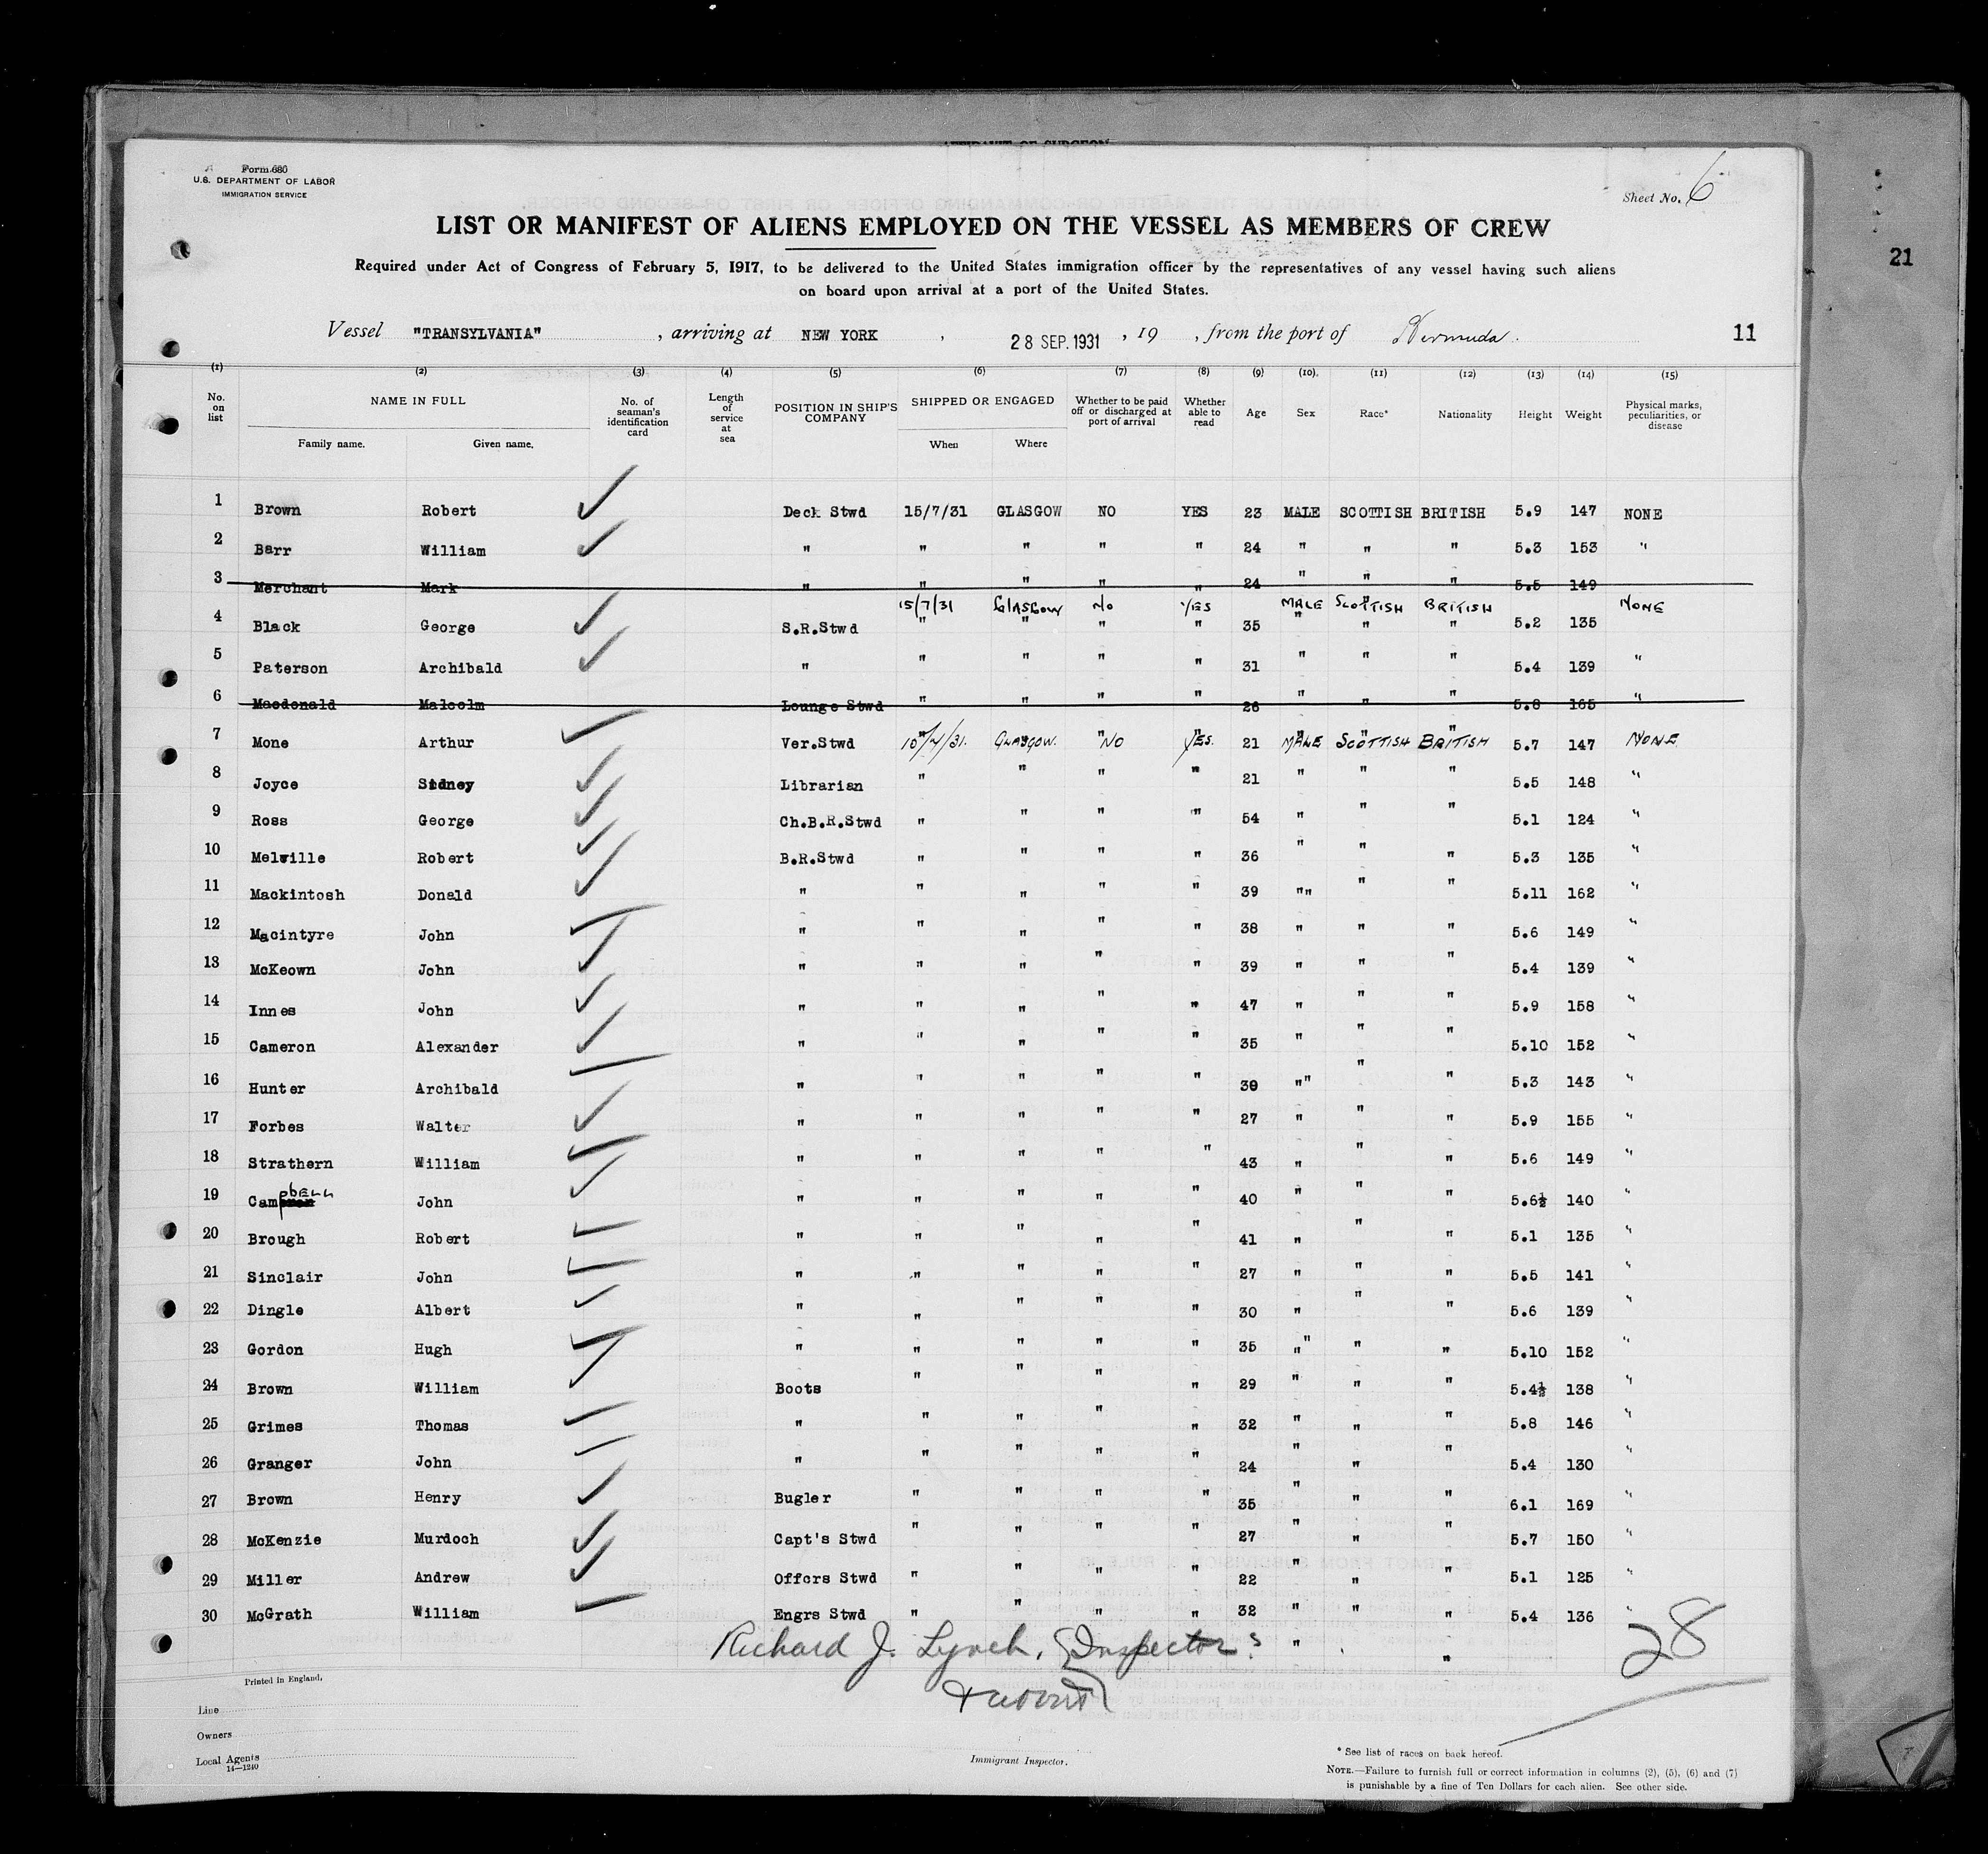 AFFIDAVIT OF SURGEON
Form 680
U.S. DEPARTMENT OF LABOR
IMMIGRATION SERVICE
Sheet No. 6
LIST OR MANIFEST OF ALIENS EMPLOYED ON THE VESSEL AS MEMBERS OF CREW
21
Required under Act of Congress of February 5, 1917, to be delivered to the United States immigration officer by the representatives of any vessel having such aliens
on board upon arrival at a port of the United States.
Vessel "TRANSYLVANIA" , arriving at NEW YORK , 28 SEP. 1931 , 19 , from the port of Bermuda. 11
(1) (2) (3) (4) (5) (6) (7) (8) (9) (10) (11) (12) (13) (14) (15)
No. on list NAME IN FULL Family name. Given name. No. of seaman's identification card Length of service at sea POSITION IN SHIP'S COMPANY SHIPPED OR ENGAGED When Where Whether to be paid off or discharged at port of arrival Whether able to read Age Sex Race* Nationality Height Weight Physical marks, peculiarities, or disease
1 Brown Robert Deck Stwd 15/7/31 GLASGOW NO YES 23 MALE SCOTTISH BRITISH 5.9 147 NONE
2 Barr William " " " " " 24 " " " 5.3 153 "
3 Merchant Mark " " " " " 24 " " " 5.5 149
15/7/31 GLASGOW No YES MALE SCOTTISH BRITISH NONE
4 Black George S.R.Stwd " " " " 35 " " " 5.2 135
5 Paterson Archibald " " " " " 31 " " " 5.4 139 "
6 Macdonald Malcolm Lounge Stwd " " " " 26 " " " 5.8 165 "
7 Mone Arthur Ver.Stwd 10/4/31. GLASGOW. NO YES. 21 MALE SCOTTISH BRITISH 5.7 147 NONE
8 Joyce Sidney Librarian " " " " 21 " " " 5.5 148 "
9 Ross George Ch.B.R.Stwd " " " " 54 " " " 5.1 124 "
10 Melville Robert B.R.Stwd " " " " 36 " " " 5.3 135 "
11 Mackintosh Donald " " " " " 39 "" " " 5.11 162 "
12 Macintyre John " " " " " 38 " " " 5.6 149 "
13 McKeown John " " " " " 39 " " " 5.4 139 "
14 Innes John " " " " " 47 " " " 5.9 158 "
15 Cameron Alexander " " " " " 35 " " " 5.10 152 "
16 Hunter Archibald " " " " " 30 "" " " 5.3 143 "
17 Forbes Walter " " " " " 27 " " " 5.9 155 "
18 Strathern William " " " " " 43 " " " 5.6 149 "
19 Campbell John " " " " " 40 " " " 5.6½ 140 "
20 Brough Robert " " " " " 41 " " " 5.1 135 "
21 Sinclair John " " " " " 27 " " " 5.5 141 "
22 Dingle Albert " " " " " 30 " " " 5.6 139 "
23 Gordon Hugh " " " " " 35 "" " " 5.10 152 "
24 Brown William Boots " " " " 29 " " " 5.4½ 138 "
25 Grimes Thomas " " " " " 32 " " " 5.8 146 "
26 Granger John " " " " " 24 " " " 5.4 130 "
27 Brown Henry Bugler " " " " 35 " " " 6.1 169 "
28 McKenzie Murdoch Capt's Stwd " " " " 27 " " " 5.7 150 "
29 Miller Andrew Offcrs Stwd " " " " 22 " " " 5.1 125 "
30 McGrath William Engrs Stwd " " " " 32 " " " 5.4 136 "
Richard J. Lynch, Inspector " " 28
Printed in England.
Line
Owners
Local Agents
14—1240
Immigrant Inspector.
* See list of races on back hereof.
NOTE.—Failure to furnish full or correct information in columns (2), (5), (6) and (7)
is punishable by a fine of Ten Dollars for each alien. See other side.